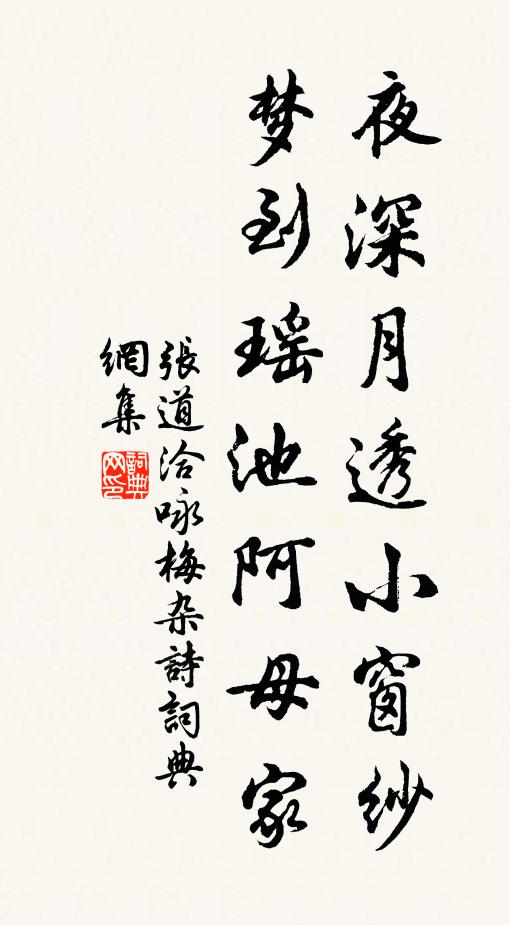 夜深月透小窗纱
梦到瑶池阿母家
張道洽咏梅杂詩詞典
網集
詞典
网印